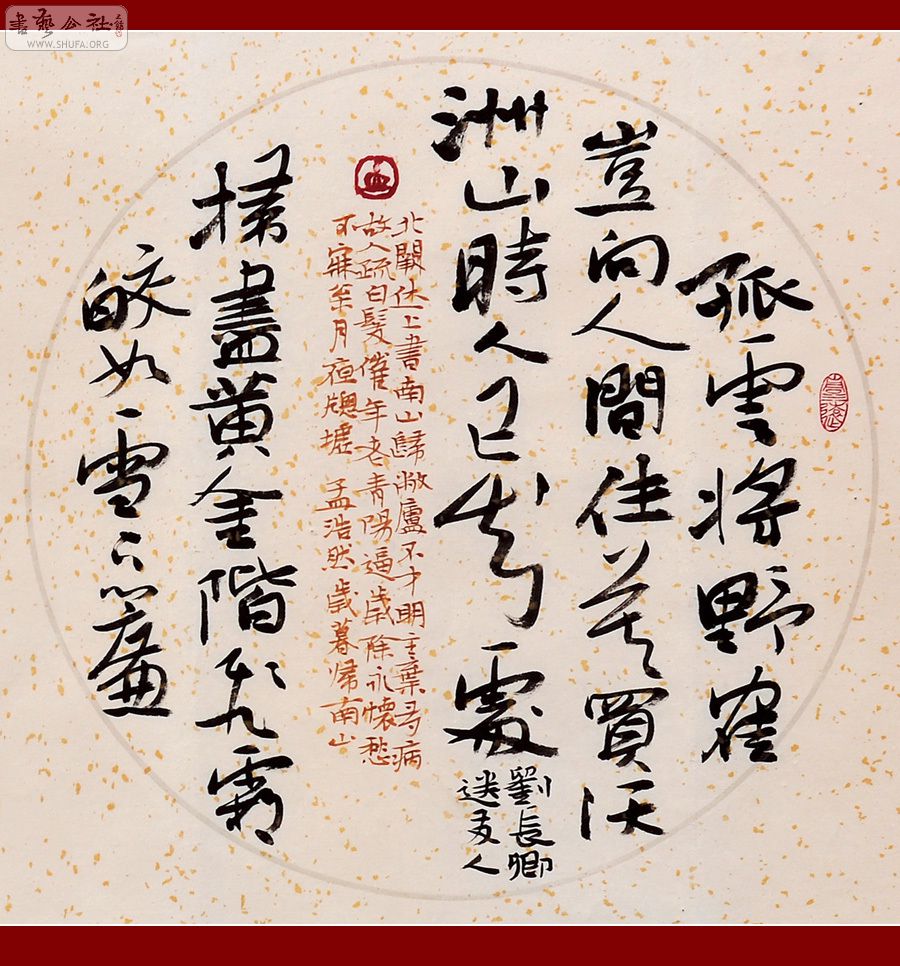 書藝公社
WWW.SHUFA.ORG
孤雲將野寉
豈向人間住莫買沃
洲山時人已知處
劉長卿
送友人
北闕休上書南山歸敝廬不才明主棄多病
故人疏白髮催年老青陽逼歲除永懷愁
不寐枀月夜牕墟 孟浩然歲暮歸南山
掃盡黃金階飛霜
皎如雪下簾